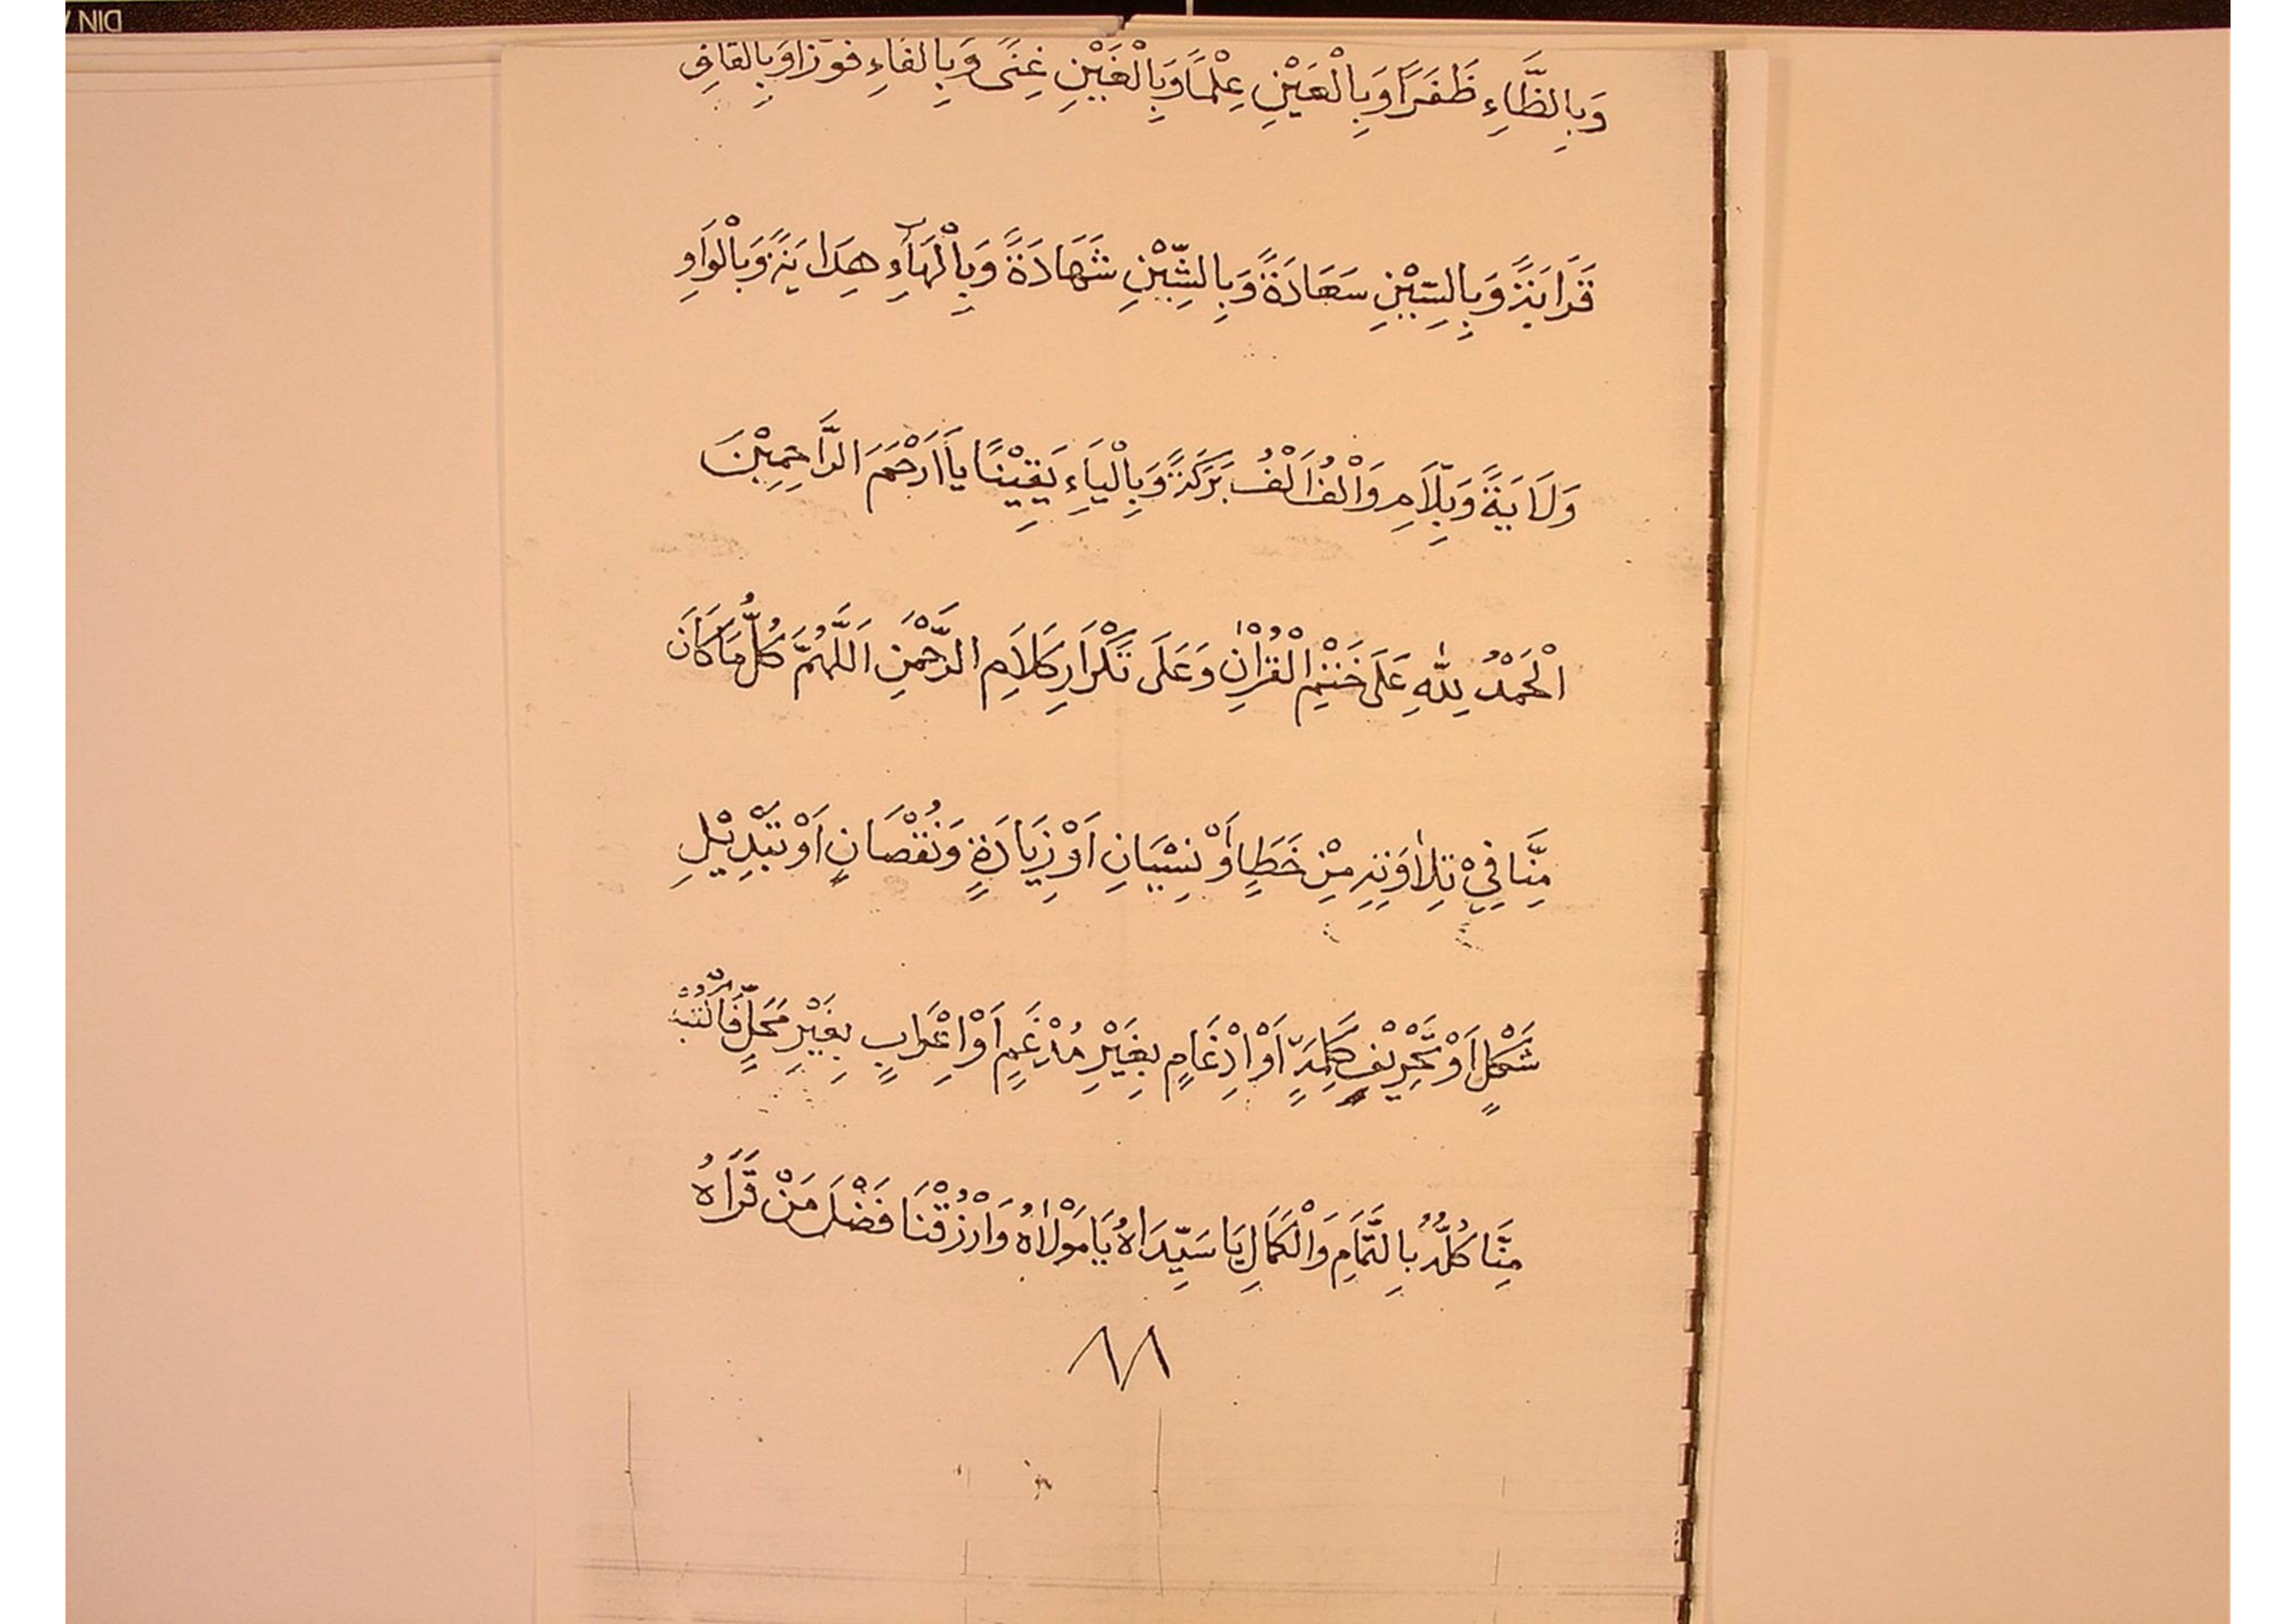 DIN
وَبِالظَّاءِ ظَفَرًا وَبِالْعَيْنِ عِلْمًا وَبِالْغَيْنِ غِنًى وَبِالْفَاءِ فَوْزًا وَبِالْقَافِ
قَرَابَةً وَبِالسِّيْنِ سَعَادَةً وَبِالشِّيْنِ شَهَادَةً وَبِالْهَآءِ هِدَايَةً وَبِالْوَاوِ
وَلَايَةً وَبِلَّامِ وَاْلفُ اَلْفُ بَرَكَةً وَبِالْيَاءِ يَقِيْنًا يَا اَرْحَمَ الرَّاحِمِيْنَ
الْحَمْدُ لِلّٰهِ عَلَى خَتْمِ الْقُرْاٰنِ وَعَلَى تَكْرَارِ كَلَامِ الرَّحْمٰنِ اَللَّهُمَّ كُلُّ مَا كَانَ
مِنَّا فِيْ تِلَاوَتِهِ مِنْ خَطَإٍ اَوْ نِسْيَانِ اَوْ زِيَادَةٍ وَنُقْصَانٍ اَوْ تَبْدِيْلِ
شَكْلٍ اَوْ تَحْرِيْفِ كَلِمَةٍ اَوْ اِدْغَامٍ بِغَيْرِ مُدْغَمٍ اَوْ اِعْرَابٍ بِغَيْرِ مَحَلٍّ
مِنَّا كُلَّهُ بِالتَّمَامِ وَالْكَمَالِ يَا سَيِّدَاهُ يَا مَوْلَاهُ وَارْزُقْنَا فَضْلَ مَنْ قَرَاَهُ
٨٨